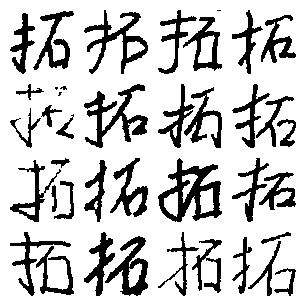 拓拓拓拓
拓拓拓拓
拓拓拓拓
拓拓拓拓